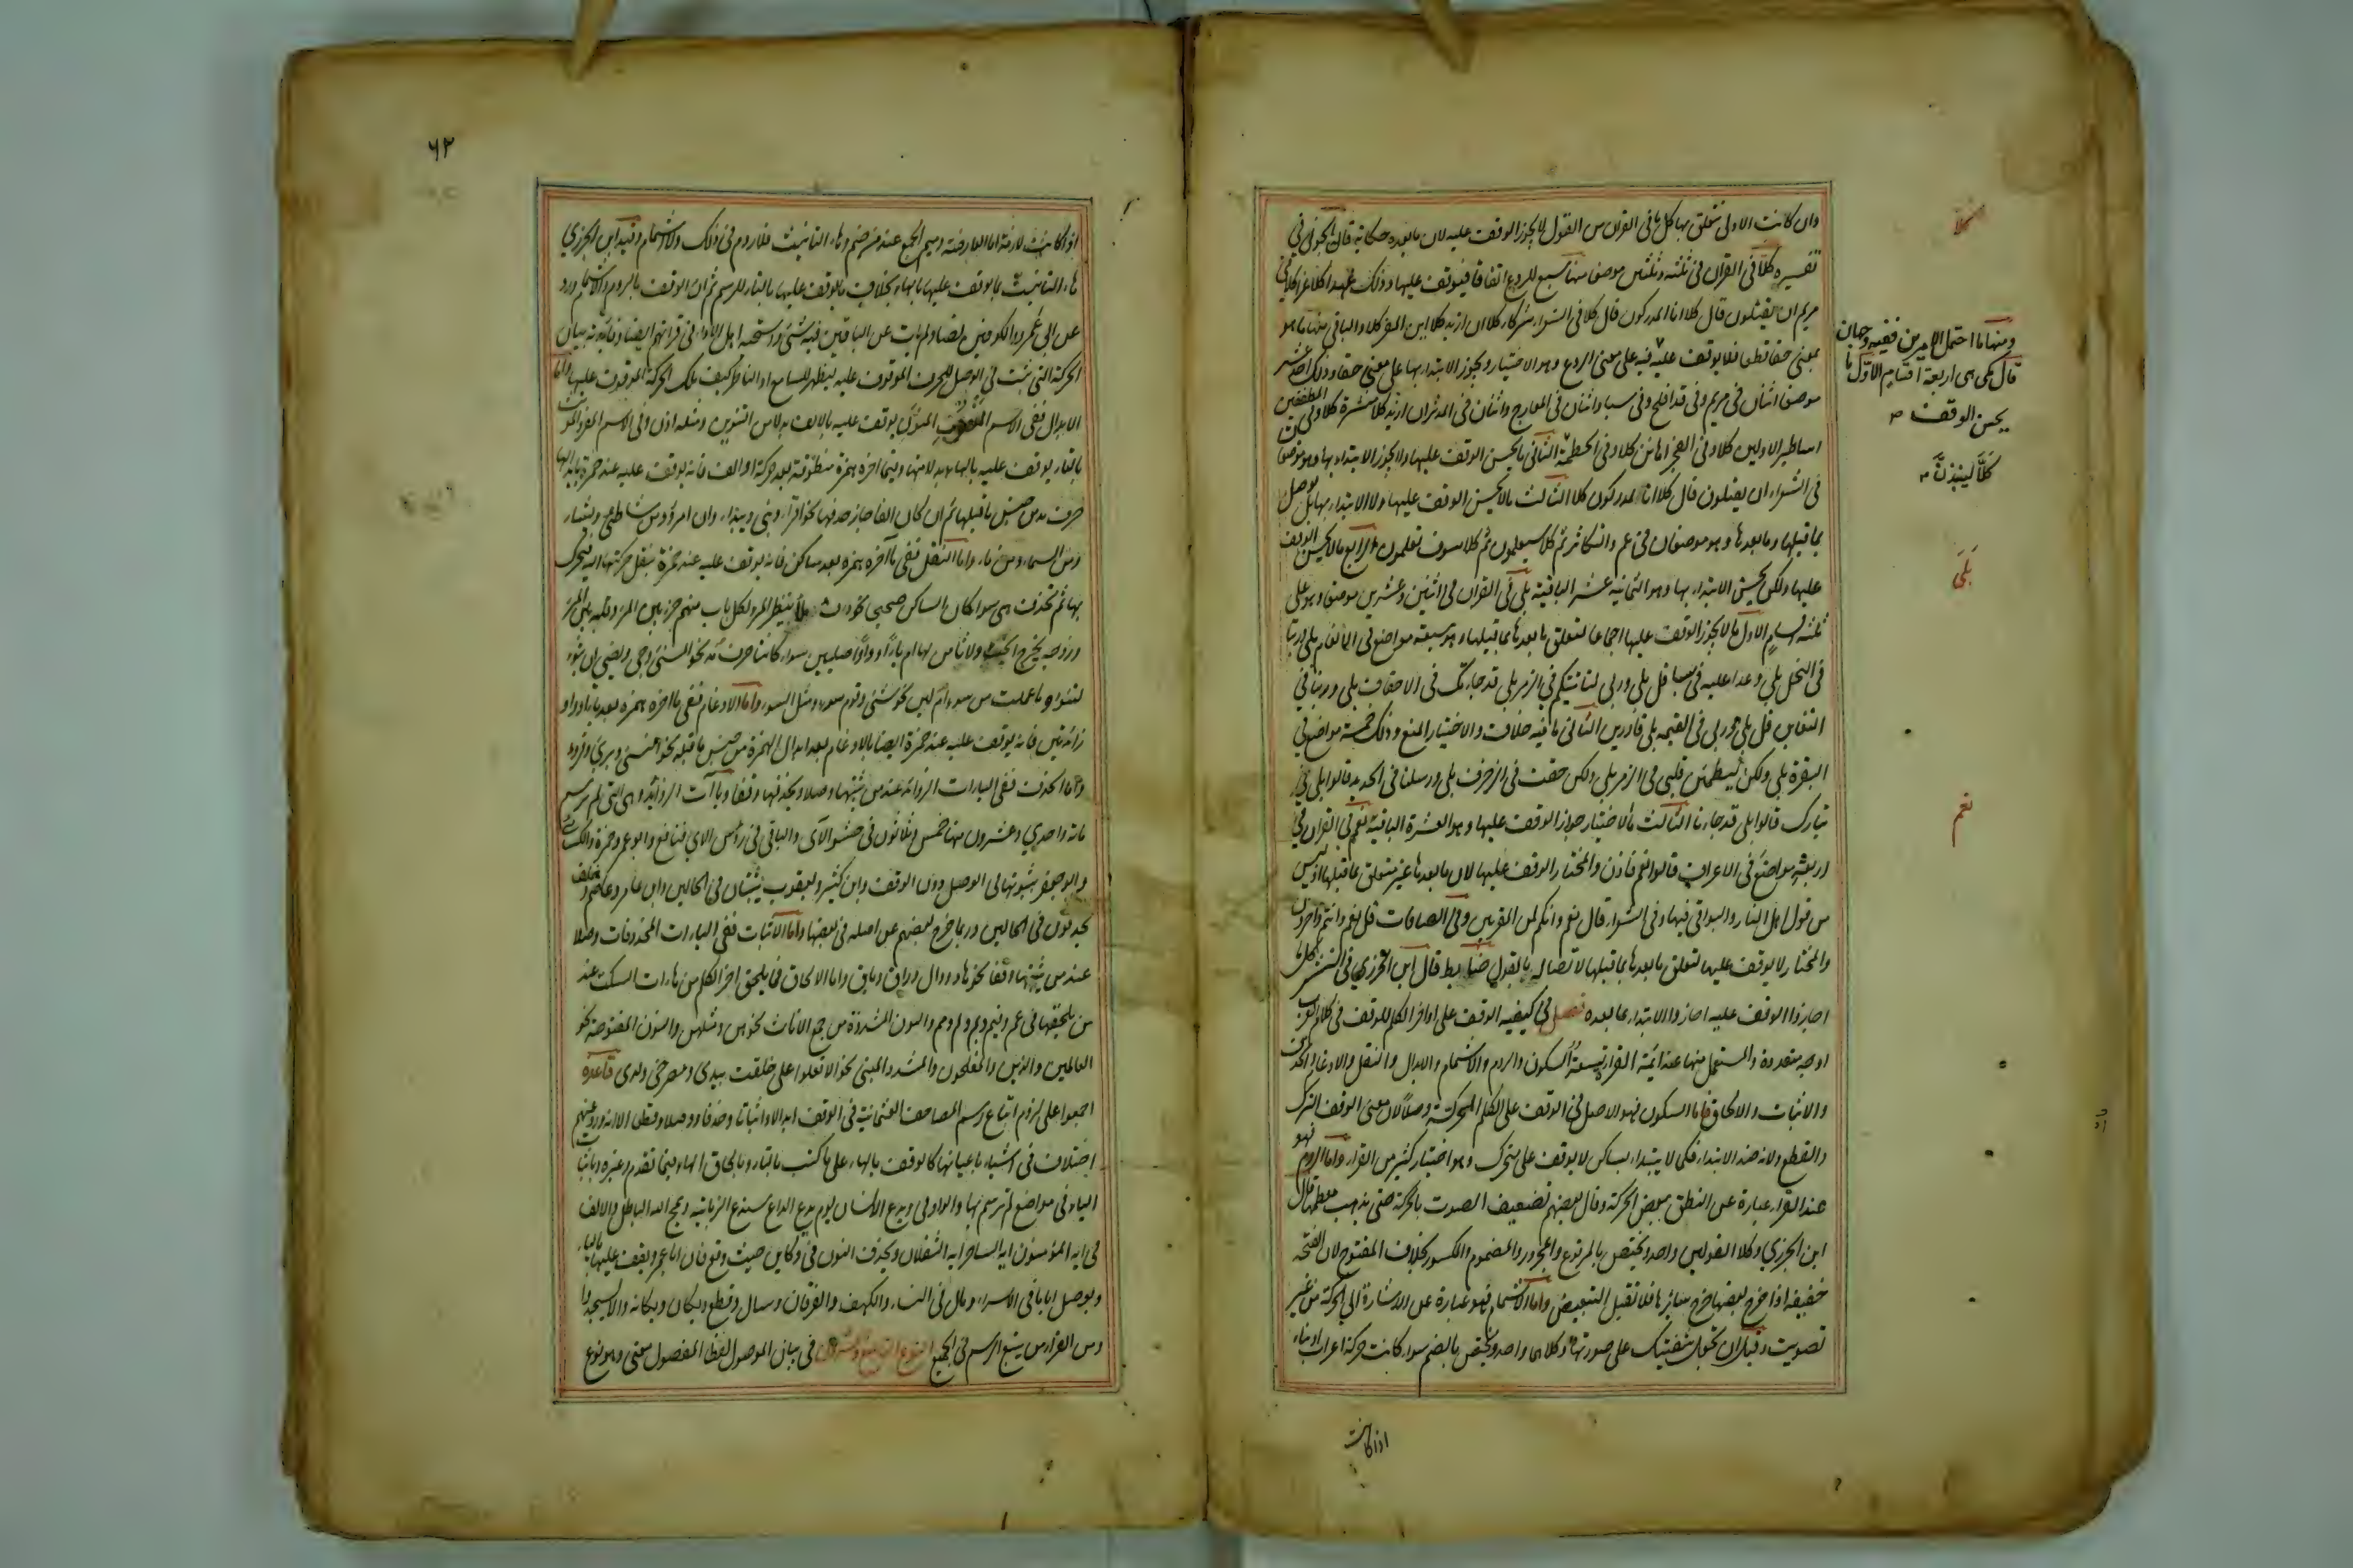 وان كانت الاولى تتعلق بها كل ما في القران من القول لا يجوز الوقف عليه لان ما بعده حكاية قال الجويني في
تفسيره كلا في القران في ثلثة وثلثين موضعا منها سبع للردع اتفاقا فيوقف عليها وذلك عهدا كلا عزا كلا في
مريم ان يقتلون قال كلا انا لمدركون قال كلا في الشعراء شركاء كلا ان ازيد كلا اين المفر كلا والباقي منها ما هو
بمعنى حقا قطعا فلا يوقف عليه ومنه على معنى الردع وهو الاختيار ويجوز الابتداء بها على معنى حقا وذلك احد عشر
موضعا اثنان في مريم وفي قد افلح وفي سبا واثنان في المعارج واثنان في المدثر ان ازيد كلا منشرة كلا وفي المطففين
اساطير الاولين كلا وفي الفجر اهانن كلا وفي الحطمة الثاني ما يحسن الوقف عليها ولا يجوز الابتداء بها وهو موضعان
في الشعراء ان يقتلون قال كلا انا لمدركون كلا الثالث ما لا يحسن الوقف عليها ولا الابتداء بها بل توصل
بما قبلها وما بعدها وهو موضعان في عم والتكاثر ثم كلا سيعلمون ثم كلا سوف تعلمون الرابع ما لا يحسن الوقف
عليها ولكن يحسن الابتداء بها وهو الثمانية عشر الباقية بلى في القران في اثنين وعشرين موضعا وهو على
ثلثة اقسام الاول ما لا يجوز الوقف عليها اجماعا لتعلق ما بعدها بما قبلها وهو سبعة مواضع في الانعام بلى وربنا
في النحل بلى وعدا عليه في سبا قل بلى وربي لتاتينكم في الزمر بلى قد جاءتك في الاحقاف بلى وربنا في
التغابن قل بلى وربي في القيمة بلى قادرين الثاني ما فيه خلاف والاختيار المنع وذلك خمسة مواضع في
البقرة بلى ولكن ليطمئن قلبي في الزمر بلى ولكن حقت في الزخرف بلى ورسلنا في الحديد قالوا بلى في
تبارك قالوا بلى قد جاءنا الثالث ما الاختيار جواز الوقف عليها وهو العشرة الباقية نعم في القران في
اربعة مواضع في الاعراف قالوا نعم فاذن والمختار الوقف عليها لان ما بعدها غير متعلق بما قبلها اذ ليس
من قول اهل النار والبواقي فيها وفي الشعراء قال نعم وانكم لمن المقربين وفي الصافات قل نعم وانتم داخرون
والمختار لا يوقف عليها لتعلق ما بعدها بما قبلها لاتصاله بالقول ضابط قال ابن الجزري في النشر كل ما
اجازوا الوقف عليه اجازوا الابتداء بما بعده فصل في كيفية الوقف على اواخر الكلم للوقف في كلام العرب
اوجه متعددة والمستعمل منها عند ائمة القراء تسعة السكون والروم والاشمام والابدال والنقل والادغام والحذف
والاثبات والالحاق فاما السكون فهو الاصل في الوقف على الكلم المحركة وصلا لان معنى الوقف الترك
والقطع ولانه ضد الابتداء فكما لا يبتداء بساكن لا يوقف على متحرك وهو اختيار كثير من القراء واما الروم فهو
عند القراء عبارة عن النطق ببعض الحركة وقال بعضهم تضعيف الصوت بالحركة حتى يذهب معظمها قال
ابن الجزري وكلا القولين واحد ويختص بالمرفوع والمجرور والمضموم والمكسور بخلاف المفتوح لان الفتحة
خفيفة اذا خرج بعضها خرج سائرها فلا تقبل التبعيض واما الاشمام فهو عبارة عن الاشارة الى الحركة من غير
تصويت وقيل ان تجعل شفتيك على صورتها وكلاهما واحد ويختص بالضم سواء كانت حركة اعراب او بناء
اذا كانت
كلا
ومنها ما احتمل الامرين ففيه وجهان
قال مكي هي اربعة اقسام الاول ما
يحسن الوقف
كلا لينبذن
بلى
نعم
۶۲
اذا كانت لازمة اما العارضة وميم الجمع عند من ضم وهاء التانيث فلا روم في ذلك ولا اشمام وقيد ابن الجزري
هاء التانيث بما يوقف عليها بالهاء بخلاف ما يوقف عليها بالتاء للرسم ثم ان الوقف بالروم والاشمام ورد
عن ابي عمرو والكوفيين نصا ولم يات عن الباقين فيه شئ واستحبه اهل الاداء في قرائتهم ايضا وفائدته بيان
الحركة التي تثبت في الوصل للحرف الموقوف عليه ليظهر للسامع او الناظر كيف تلك الحركة الموقوف عليها واما
الابدال ففي الاسم المنصوب المنون يوقف عليه بالالف بدلا من التنوين ومثله اذن وفي الاسم المفرد المؤنث
بالتاء يوقف عليه بالهاء بدلا منها وفيما اخره همزة متطرفة بعد حركة او الف فانه يوقف عليه عند حمزة بابدالها
حرف مد من جنس ما قبلها ثم ان كان الفا جاز حذفها نحو اقرا ونبئ ويبدا وان امرؤ ومن شاطئ ويشاء
ومن السماء ومن ماء واما النقل ففي ما آخره همزة بعد ساكن فانه يوقف عليه عند حمزة بنقل حركتها اليه فيحرك
بها ثم تحذف هي سواء كان الساكن صحيحا نحو دفء ملء ينظر المرء لكل باب منهم جزء بين المرء وقلبه بين المرء
وزوجه يخرج الخبء ولا ثامن لها ام ياء او واوا اصليين سواء كانتا حرف مد نحو المسئ وجئ ويضئ ان تبوء
لتنوء وما عملت من سوء ام لين نحو شئ وقوم سوء مثل السوء واما الادغام ففي ما اخره همزة بعد ياء او واو
زائدتين فانه يوقف عليه عند حمزة ايضا بالادغام بعد ابدال الهمزة من جنس ما قبله نحو النسئ وبرئ وقروء
واما الحذف ففي الياءات الزوائد عند من يثبتها وصلا ويحذفها وقفا وياآت الزوائد وهي التي لم ترسم
مائة واحدى وعشرون منها خمس وثلاثون في حشو الآي والباقي في رؤس الاي فنافع وابو عمرو وحمزة والكسائي
وابو جعفر يثبتونها في الوصل دون الوقف وابن كثير ويعقوب يثبتان في الحالين وابن عامر وعاصم وخلف
يحذفون في الحالين وربما خرج بعضهم عن اصله في بعضها واما الاثبات ففي الياءات المحذوفات وصلا
عند من يثبتها وقفا نحو هاد ووال وواق وباق واما الالحاق فما يلحق اخر الكلم من هاءات السكت عند
من يلحقها في عم وفيم وبم ولم ومم والنون المشددة من جمع الاناث نحو هن ومثلهن والنون المفتوحة نحو
العالمين والذين والمفلحون والمشدد المبني نحو الا تعلوا علي خلقت بيدي ومصرخي ولدي قاعدة
اجمعوا على لزوم اتباع رسم المصاحف العثمانية في الوقف ابدالا واثباتا وحذفا ووصلا وقطعا الا انه ورد عنهم
اختلاف في اشياء باعيانها كالوقف بالهاء على ما كتب بالتاء وبالحاق الهاء فيما تقدم وغيره وباثبات
الياء في مواضع لم ترسم بها والواو في ويدع الانسان يوم يدع الداع سندع الزبانية ويمح الله الباطل والالف
في ايه المؤمنون ايه الساحر ايه الثقلان ويحذف النون في وكاين حيث وقع فان ابا عمرو يقف عليها بالياء
ويوصل اياما في الاسراء ومال في النساء والكهف والفرقان وسال وقطع ويكان ويكانه والا يسجدوا
ومن القراء من يتبع الرسم في الجميع النوع التاسع والعشرون في بيان الموصول لفظا المفصول معنى وهو نوع